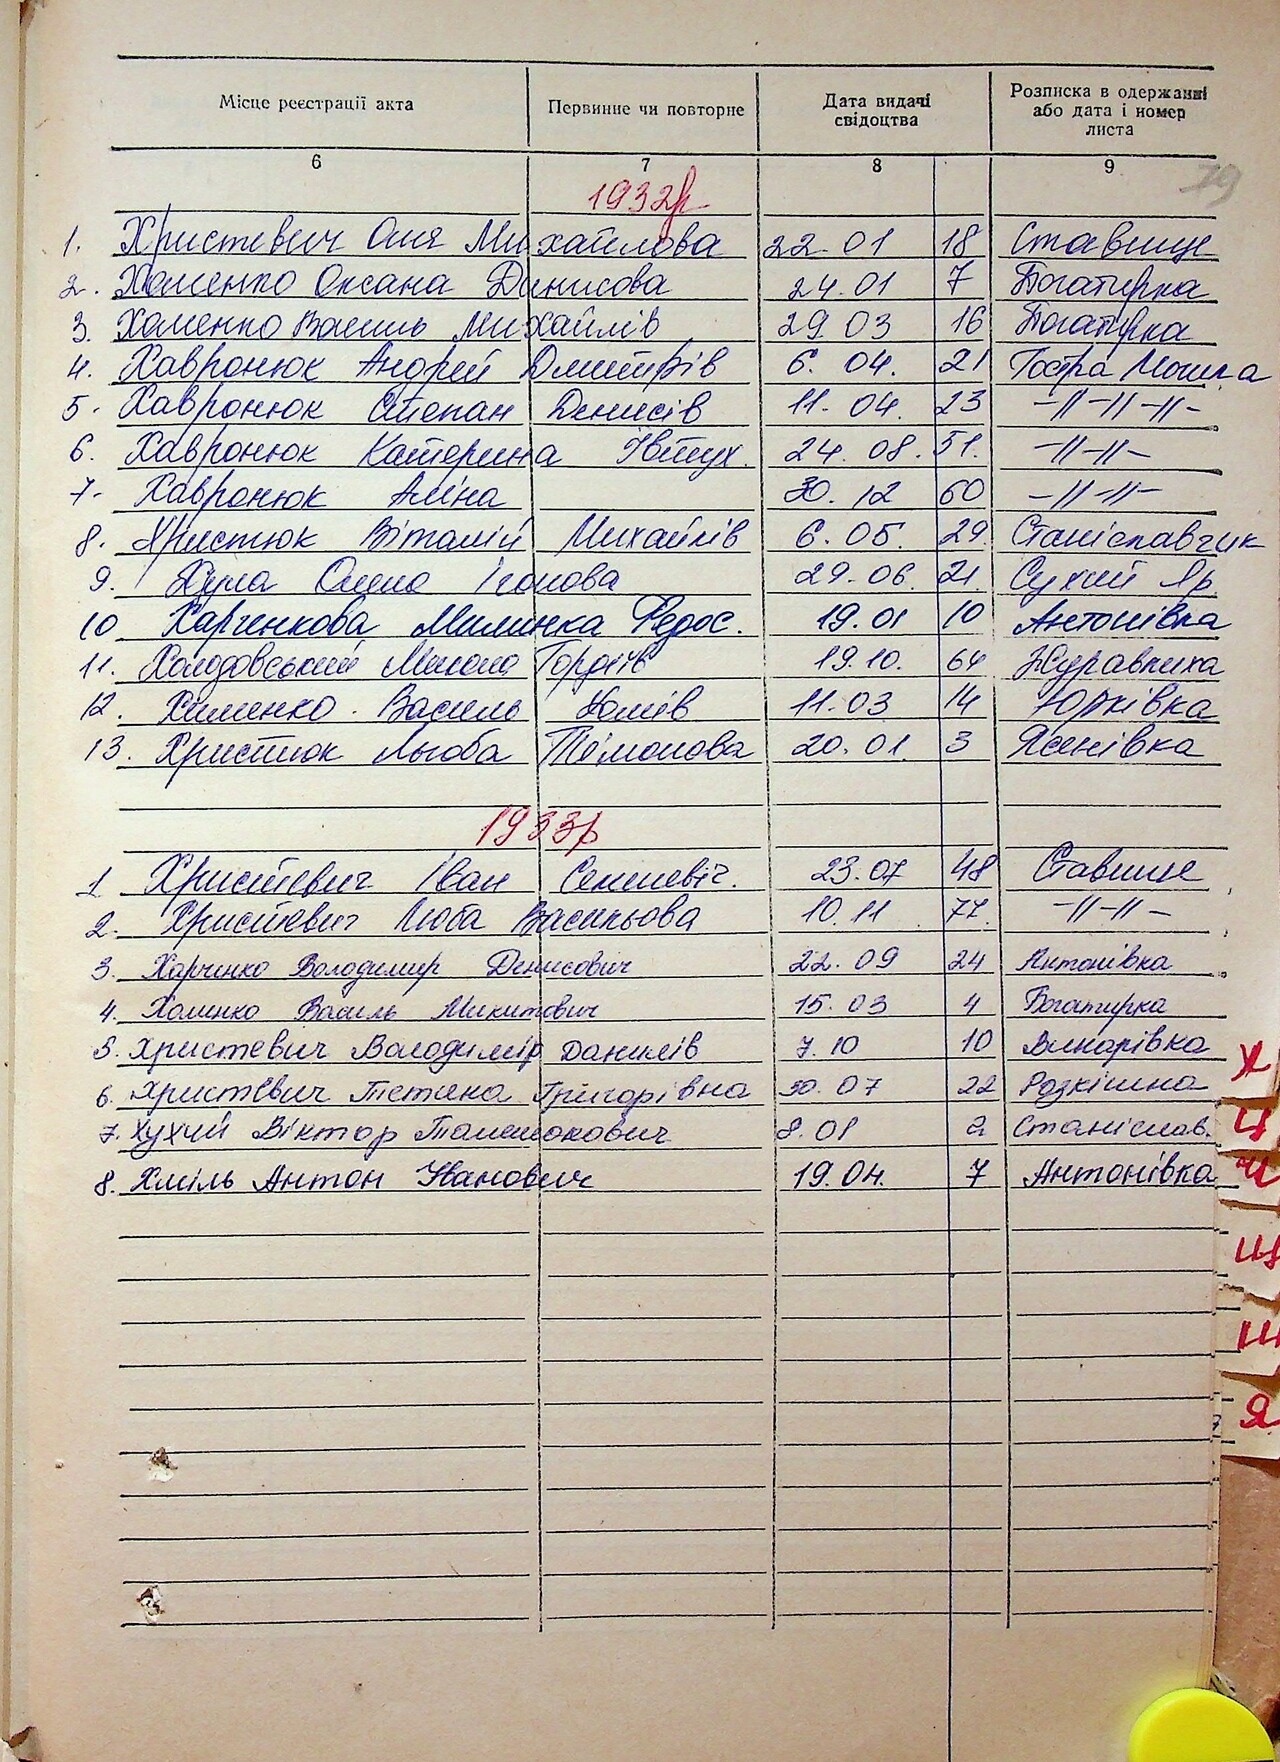 Місце реєстрації акта Первинне чи повторне Дата видачі свідоцтва Розписка в одержанні або дата і номер листа
6 7 8 9
79
1932р
1. Христевич Оля Михайлова 22.01 18 Ставище
2. Хоменко Оксана Денисова 24.01 7 Богатирка
3. Хоменко Василь Михайлів 29 03 16 Богатирка
4. Хавронюк Андрей Дмитрів 6. 04. 21 Гостра Могила
5. Хавронюк Степан Денисів 11. 04. 23 -//-//-//-
6. Хавронюк Катерина Явтух. 24. 08. 51. -//-//-
7. Хавронюк Аліна 30. 12 60 -//-//-
8. Христюк Віталій Михайлів 6. 05. 29. Станіславчик
9. Олена 29. 06. 21 Сухий Яр
10 Харченкова Федос. 19. 01 10 Антонівка
11. Холодовський Микола Гордіїв 19. 10. 64 Журавлиха
12. Хименко. Василь 11. 03 14 Юрківка
13. Христюк Люба 20. 01. 3 Ясенівка
1933р
1 Христевич Іван Семенєвіч. 23. 07 48 Ставище
2. Христевич Люба Васильова 10. 11 77. -//-//-
3. Харченко Володимир Денисович 22. 09 24 Антонівка
4. Хоменко Василь Микитович 15. 03 4 Богатирка
5. Христевич Володимір Данилів 7. 10 10 Винарівка
6. Христевич Тетяна Григорівна 30. 07 22 Розкішна
7. Хухчій Віктор 8. 01 2 Станіслав.
8. Хміль Антон Иванович 19. 04. 7 Антонівка
Х
Ц
Ч
Щ
Ш
Я